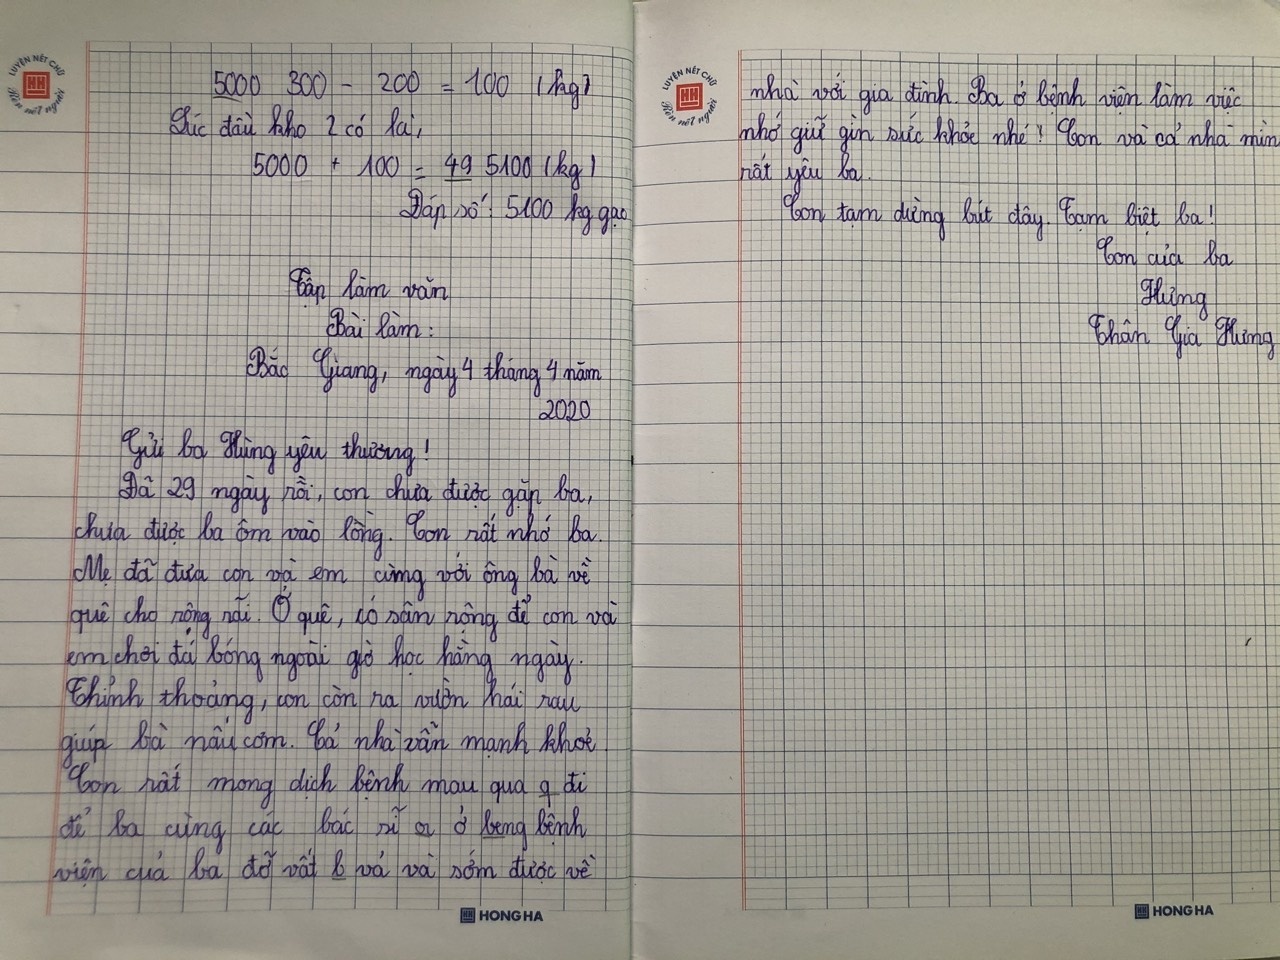 LUYỆN NÉT CHỮ
Rèn nết người
5000 300 - 200 = 100 (kg)
Lúc đầu kho 2 có là,
5000 + 100 = 49 5100 (kg)
Đáp số: 5100 kg gạo
Tập làm văn
Bài làm:
Bắc Giang, ngày 4 tháng 4 năm
2020
Gửi ba Hùng yêu thương!
Đã 29 ngày rồi, con chưa được gặp ba,
chưa được ba ôm vào lòng. Con rất nhớ ba.
Mẹ đã đưa con và em cùng với ông bà về
quê cho rộng rãi. Ở quê, có sân rộng để con và
em chơi đá bóng ngoài giờ học hằng ngày.
Thỉnh thoảng, con còn ra vườn hái rau
giúp bà nấu cơm. Cả nhà vẫn mạnh khoẻ.
Con rất mong dịch bệnh mau qua q đi
để ba cùng các bác sĩ a ở beng bệnh
viện của ba đỡ vất b vả và sớm được về
HONG HA
LUYỆN NÉT CHỮ
Rèn nết người
nhà với gia đình. Ba ở bệnh viện làm việc
nhớ giữ gìn sức khỏe nhé! Con và cả nhà mìn
rất yêu ba.
Con tạm dừng bút đây. Tạm biệt ba!
Con của ba
Hưng
Thân Gia Hưng
HONG HA